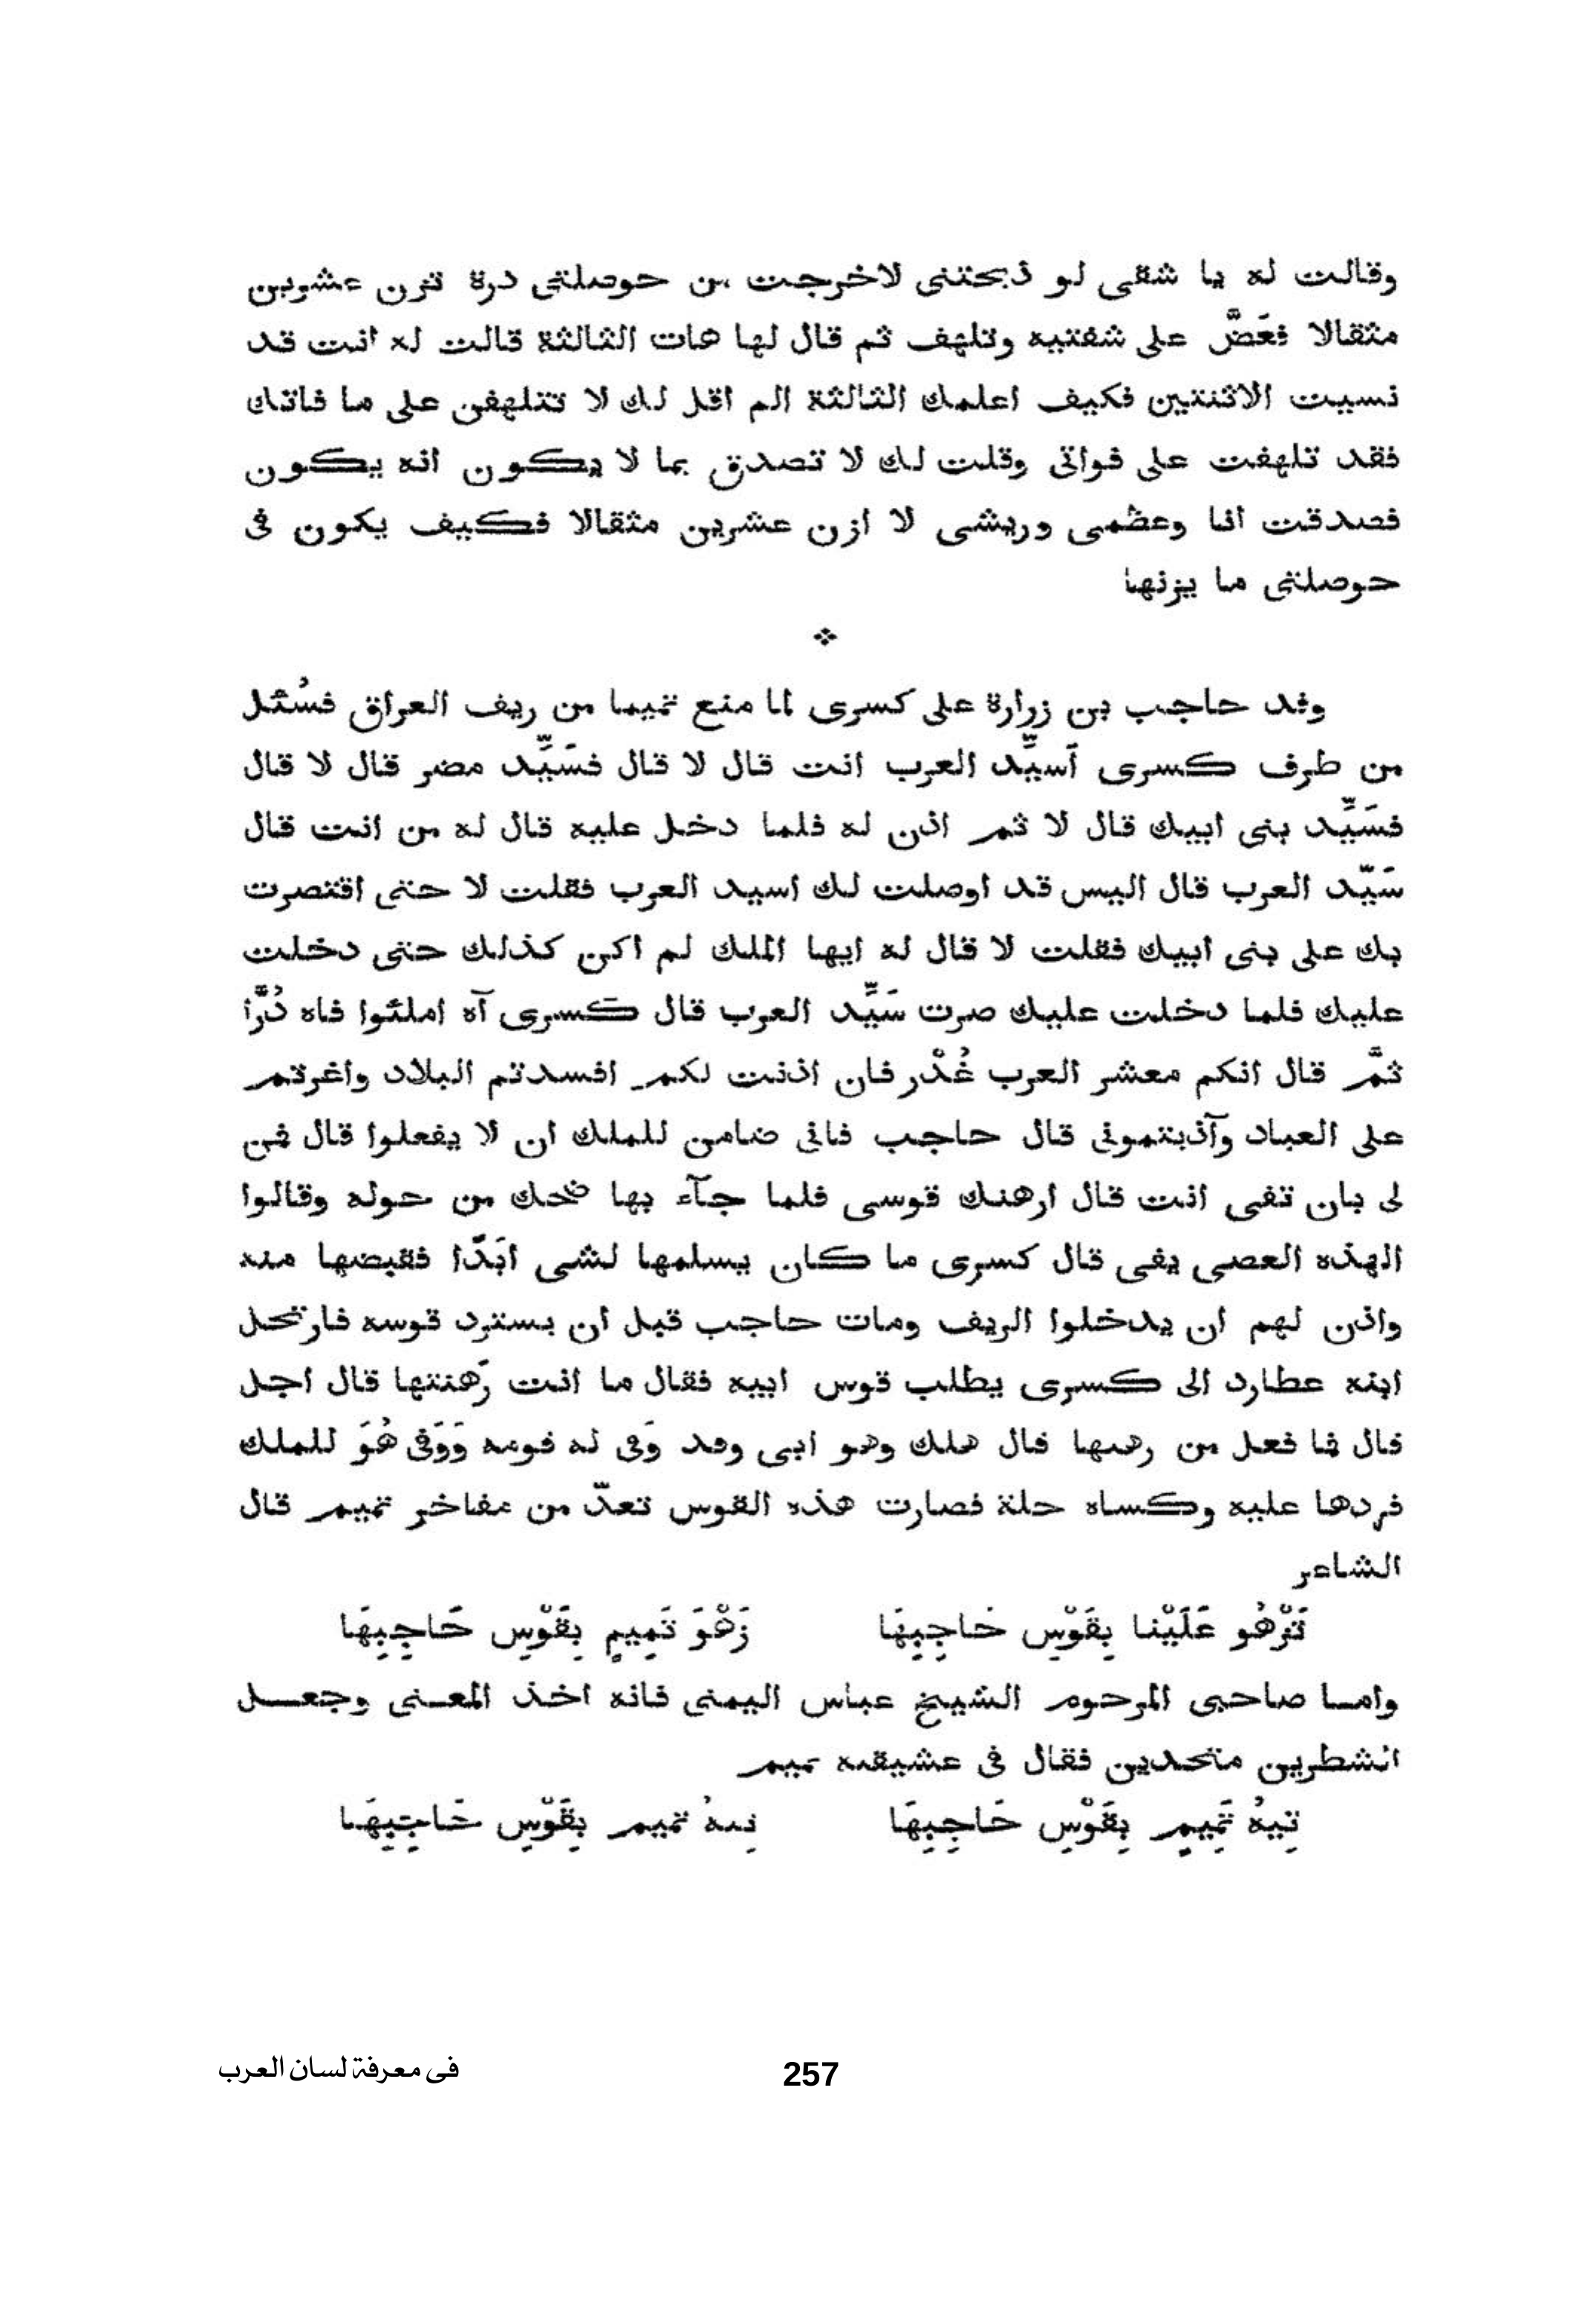 وقالت له يا شقى لو ذبحتنى لاخرجت من حوصلتى درة تزن عشرين
مثقالا فعَضَّ على شفتيه وتلهف ثم قال لها هات الثالثة قالت له انت قد
نسيت الاثنتين فكيف اعلمك الثالثة الم اقل لك لا تتلهفن على ما فاتك
فقد تلهفت على فواتى وقلت لك لا تصدق بما لا يكون انه يكون
فصدقت انا وعظمى وريشى لا ازن عشرين مثقالا فكيف يكون فى
حوصلتى ما يزنها
وفد حاجب بن زرارة على كسرى لما منع تميما من ريف العراق فسُئل
من طرف كسرى أَسيِّد العرب انت قال لا قال فسَيِّد مضر قال لا قال
فسَيِّد بنى ابيك قال لا ثم اذن له فلما دخل عليه قال له من انت قال
سَيّد العرب قال اليس قد اوصلت لك اسيد العرب فقلت لا حتى اقتصرت
بك على بنى ابيك فقلت لا قال له ايها الملك لم اكن كذلك حتى دخلت
عليك فلما دخلت عليك صرت سَيِّد العرب قال كسرى آه املئوا فاه دُرًّا
ثمَّ قال انكم معشر العرب غُدْر فان اذنت لكم افسدتم البلاد واغرتم
على العباد وآذيتمونى قال حاجب فانى ضامن للملك ان لا يفعلوا قال فمن
لى بان تفى انت قال ارهنك قوسى فلما جآء بها ضحك من حوله وقالوا
الهذه العصى يفى قال كسرى ما كان يسلمها لشى ابَدًا فقبضها منه
واذن لهم ان يدخلوا الريف ومات حاجب قبل ان يسترد قوسه فارتحل
ابنه عطارد الى كسرى يطلب قوس ابيه فقال ما انت رَهنتها قال اجل
قال فما فعل من رهنها قال هلك وهو ابى وقد وَفى له قومه وَوَفى هُوَ للملك
فردها عليه وكساه حلة فصارت هذه القوس تعدّ من مفاخر تميم قال
الشاعر
تَزْهُو عَلَيْنا بِقَوْسِ حَاجِبِهَا زَهْوَ تَمِيمٍ بِقَوْسِ حَاجِبِهَا
واما صاحبى المرحوم الشيخ عباس اليمنى فانه اخذ المعنى وجعل
الشطرين متحدين فقال فى عشيقته تميم
تِيهُ تَمِيمٍ بِقَوْسِ حَاجِبِهَا تِيهُ تميم بِقَوْسِ حَاجِبِهَا
257
فى معرفة لسان العرب